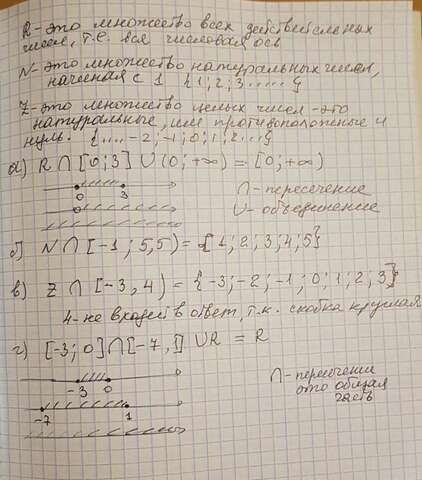 R - это множество всех действительных
чисел, т.е. вся числовая ось
N - это множество натуральных чисел,
начиная с 1 {1; 2; 3.....}
Z - это множество целых чисел - это
натуральные, им противоположные и
нуль. {.... -2; -1; 0; 1; 2...}
а) R ∩ [0; 3] ∪ (0; +∞) = [0; +∞)
0 3
∩ - пересечение
0
∪ - объединение
б) N ∩ [-1; 5,5) = {1; 2; 3; 4; 5}
в) Z ∩ [-3, 4) = {-3; -2; -1; 0; 1; 2; 3}
4 - не входит в ответ, т.к. скобка круглая
г) [-3; 0] ∩ [-7, 1] ∪ R = R
-3 0
∩ - пересечение
это общая
часть
-7 1